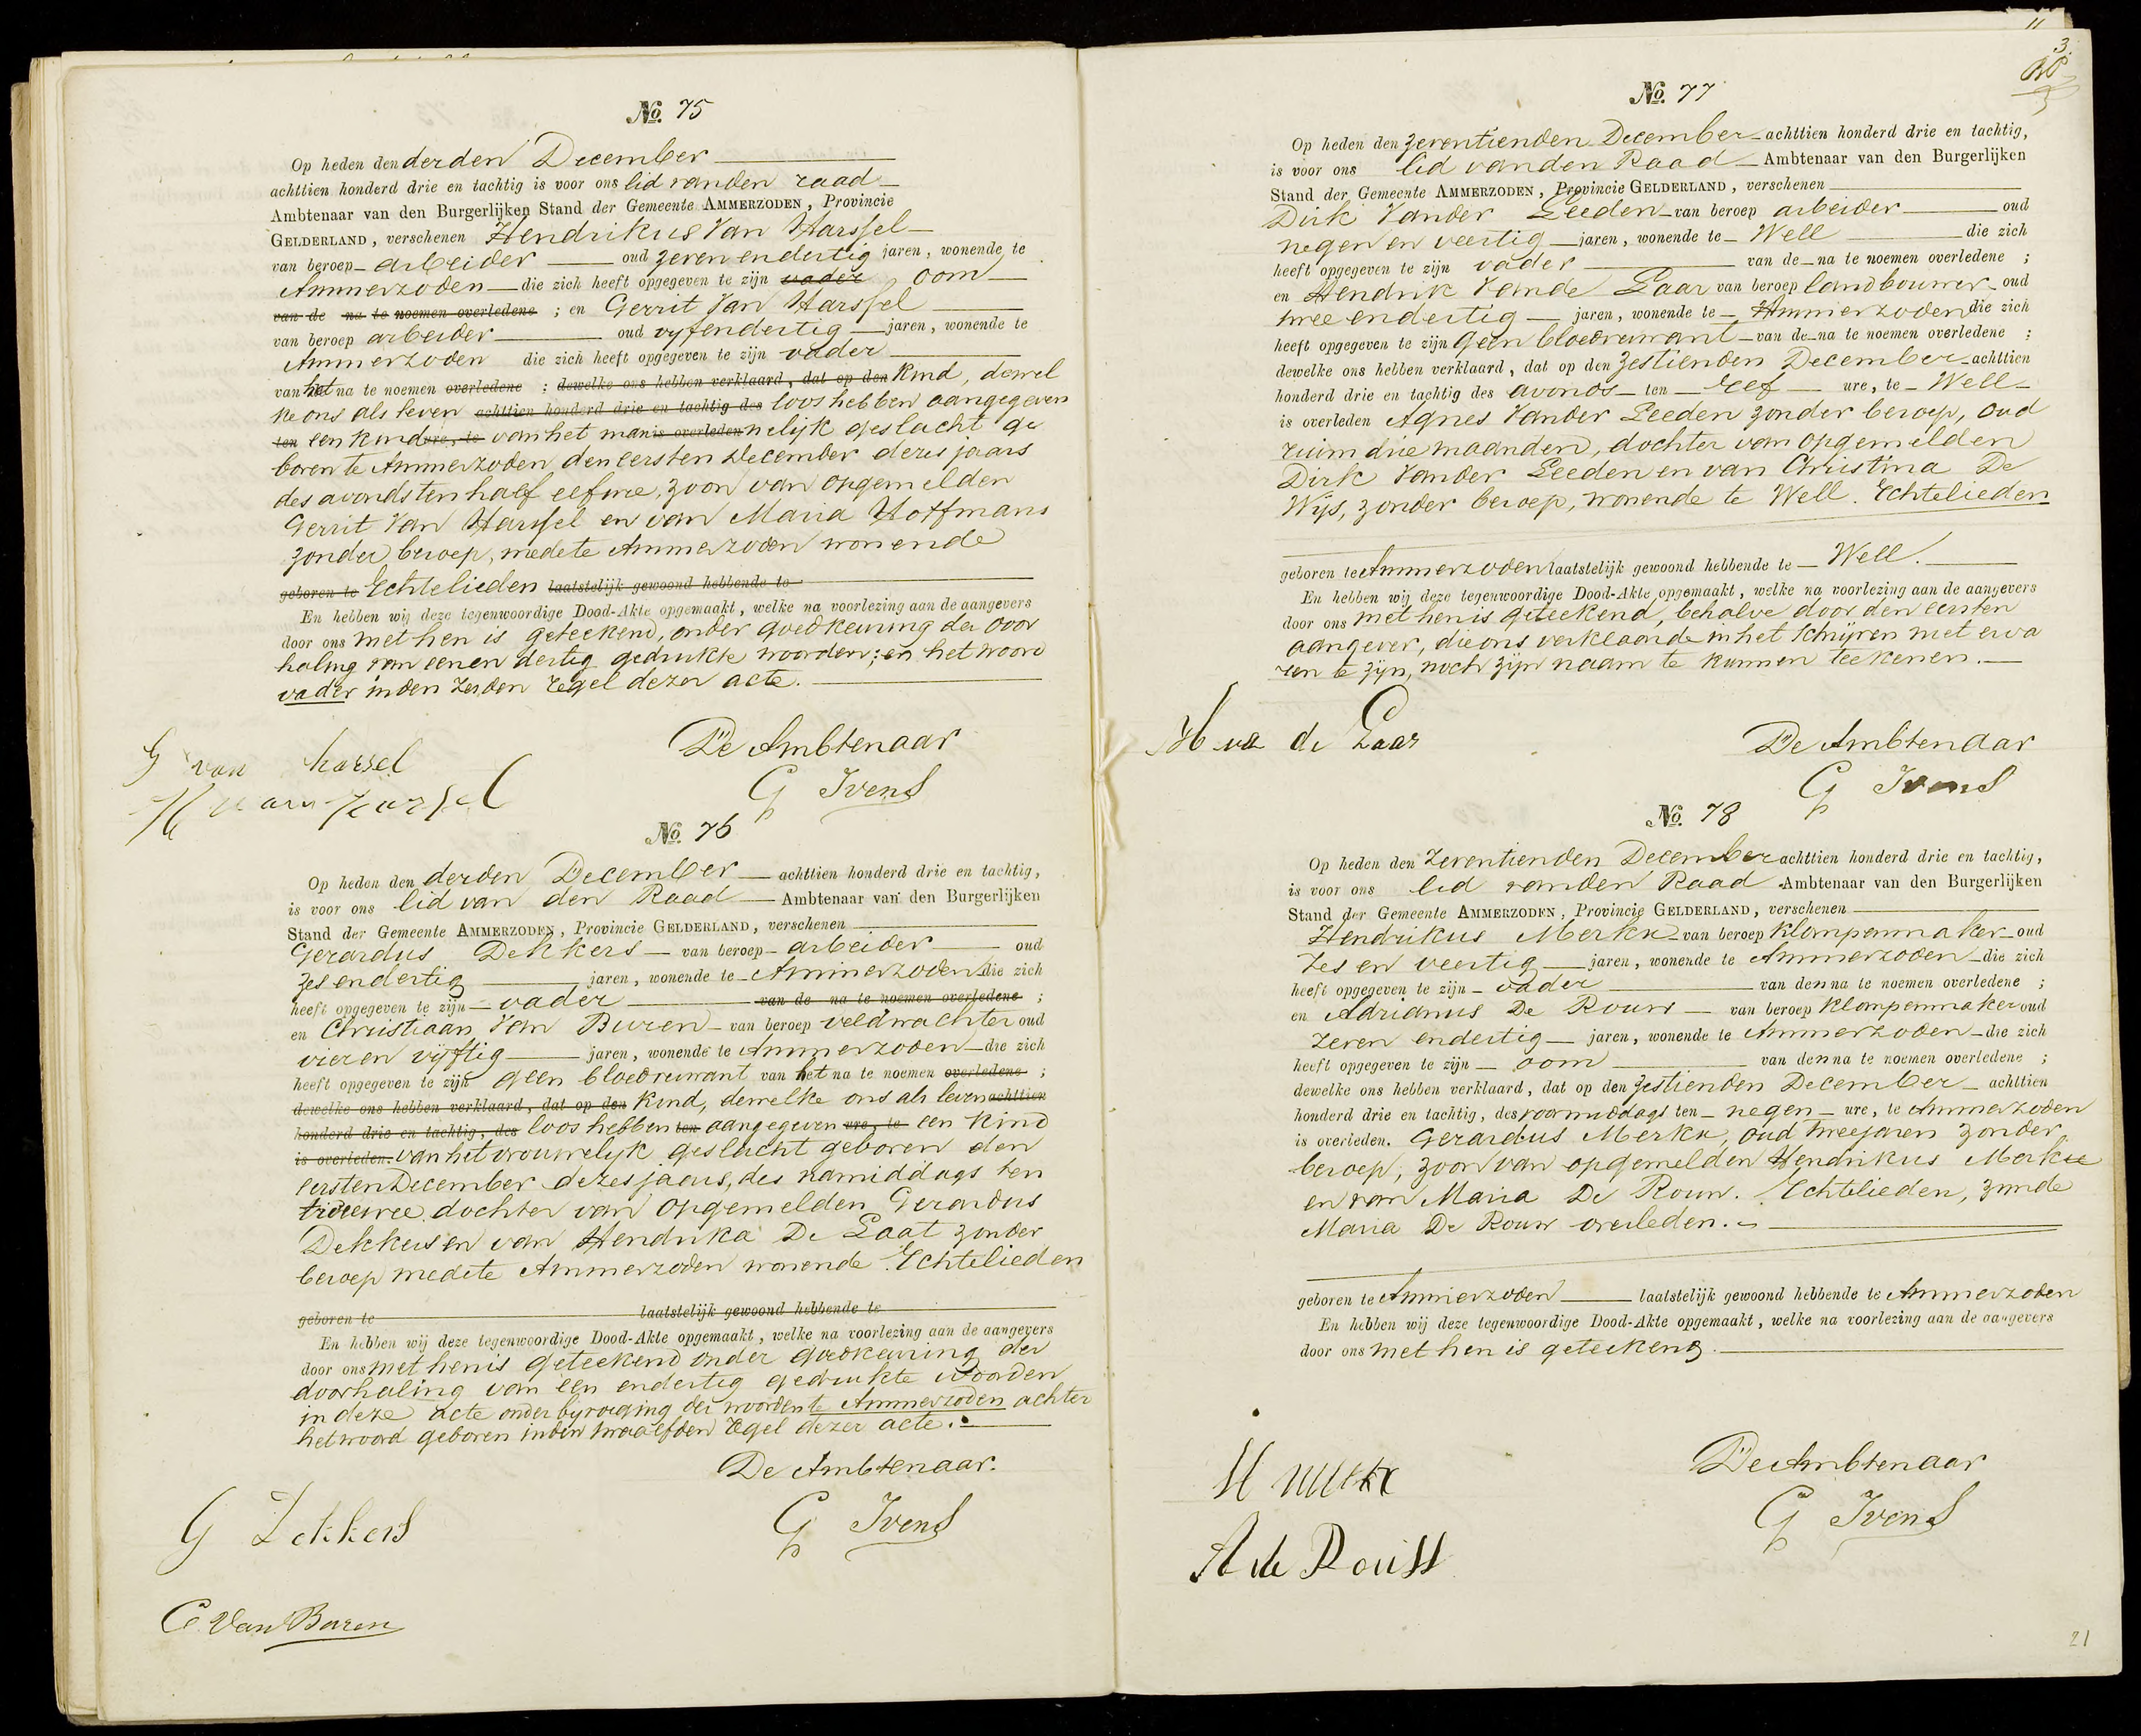 No. 75
Op heden den derden December
achttien honderd drie en tachtig is voor ons lid van den raad
Ambtenaar van den Burgerlijken Stand der Gemeente AMMERZODEN, Provincie
GELDERLAND, verschenen Hendrikus Van Harssel
van beroep arbeider oud zeven en dertig jaren, wonende te
Ammerzoden die zich heeft opgegeven te zijn vader oom
van de na te noemen overledene ; en Gerrit Van Harssel
van beroep arbeider oud vyf en dertig jaren, wonende te
Ammerzoden die zich heeft opgegeven te zijn vader
van het na te noemen overledene ; dewelke ons hebben verklaard, dat op den Kind, dewel
ke ons als leven achttien honderd drie en tachtig des loos hebben aangegeven
ten een kind ure, te van het man is overleden nelijk geslacht ge
boren te Ammerzoden den eersten December dezes jaars
des avonds ten half elf ure, zoon van opgemelden
Gerrit Van Harssel en van Maria Hoffmans
zonder beroep, mede te Ammerzoden wonende
geboren te Echtelieden laatstelijk gewoond hebbende te
En hebben wij deze tegenwoordige Dood-Akte opgemaakt, welke na voorlezing aan de aangevers
door ons met hen is geteekend, onder goedkeuring der door
haling van een en dertig gedrukte woorden; en het woord
vader in den zesden regel dezer acte.
De Ambtenaar
G van harsel
H van Harssel
G Ivens
No. 76
Op heden den derden December achttien honderd drie en tachtig,
is voor ons lid van den Raad Ambtenaar van den Burgerlijken
Stand der Gemeente AMMERZODEN, Provincie GELDERLAND, verschenen
Gerardus Dekkers van beroep arbeider oud
zes en dertig jaren, wonende te Ammerzoden die zich
heeft opgegeven te zijn vader van de na te noemen overledene ;
en Christiaan Van Buren van beroep veldwachter oud
vier en vyftig jaren, wonende te Ammerzoden die zich
heeft opgegeven te zijn geen bloedverwant van het na te noemen overledene ;
dewelke ons hebben verklaard, dat op den Kind, dewelke ons als leven achttien
honderd drie en tachtig, des loos hebben ten aangegeven ure, te een kind
is overleden. van het vrouwelyk geslacht geboren den
eersten December dezes jaars, des namiddags ten
twee ure dochter van opgemelden Gerardus
Dekkers en van Hendrika De Laat zonder
beroep mede te Ammerzoden wonende. Echtelieden
geboren te laatstelijk gewoond hebbende te
En hebben wij deze tegenwoordige Dood-Akte opgemaakt, welke na voorlezing aan de aangevers
door ons met hen is geteekend onder goedkeuring der
doorhaling van een en dertig gedrukte woorden
in deze acte onder byvoeging der woorden te Ammerzoden achter
het woord geboren in den twaalfden regel dezer acte.
De Ambtenaar.
G Dekkers
G Ivens
C. Van Buren
11
3.
No. 77
Op heden den zeventienden December achttien honderd drie en tachtig,
is voor ons lid van den Raad Ambtenaar van den Burgerlijken
Stand der Gemeente AMMERZODEN, Provincie GELDERLAND, verschenen
Dirk Vander Leeden van beroep arbeider oud
negen en veertig jaren, wonende te Well die zich
heeft opgegeven te zijn vader van de na te noemen overledene ;
en Hendrik Vande Laar van beroep landbouwer oud
twee en dertig jaren, wonende te Ammerzoden die zich
heeft opgegeven te zijn geen bloedverwant van de na te noemen overledene ;
dewelke ons hebben verklaard, dat op den zestienden December achttien
honderd drie en tachtig des avonds ten elf ure, te Well
is overleden Agnes Vander Leeden zonder beroep, oud
ruim drie maanden, dochter van opgemelden
Dirk Vander Leeden en van Christina De
Wijs, zonder beroep, wonende te Well. Echtelieden
geboren te Ammerzoden laatstelijk gewoond hebbende te Well.
En hebben wij deze tegenwoordige Dood-Akte opgemaakt, welke na voorlezing aan de aangevers
door ons met hen is geteekend, behalve door den eersten
aangever, die ons verklaarde in het schrijven niet erva
ren te zijn, noch zijn naam te kunnen teekenen.
H va de Laar
De Ambtenaar
G Ivens
No. 78
Op heden den zeventienden December achttien honderd drie en tachtig,
is voor ons lid van den Raad Ambtenaar van den Burgerlijken
Stand der Gemeente AMMERZODEN, Provincie GELDERLAND, verschenen
Hendrikus Merkx van beroep Klompenmaker oud
Zes en veertig jaren, wonende te Ammerzoden die zich
heeft opgegeven te zijn vader van den na te noemen overledene ;
en Adrianus De Rouw van beroep Klompenmaker oud
Zeven en dertig jaren, wonende te Ammerzoden die zich
heeft opgegeven te zijn oom van den na te noemen overledene ;
dewelke ons hebben verklaard, dat op den zestienden December achttien
honderd drie en tachtig, des voormiddags ten negen ure, te Ammerzoden
is overleden. Gerardus Merkx, oud twee jaren zonder
beroep, zoon van opgemelden Hendrikus Merkx
en van Maria De Rouw. Echtelieden, zijnde
Maria De Rouw overleden.
geboren te Ammerzoden laatstelijk gewoond hebbende te Ammerzoden
En hebben wij deze tegenwoordige Dood-Akte opgemaakt, welke na voorlezing aan de aangevers
door ons met hen is geteekend.
De Ambtenaar
H Merkx
G Ivens
A de Rouw
21